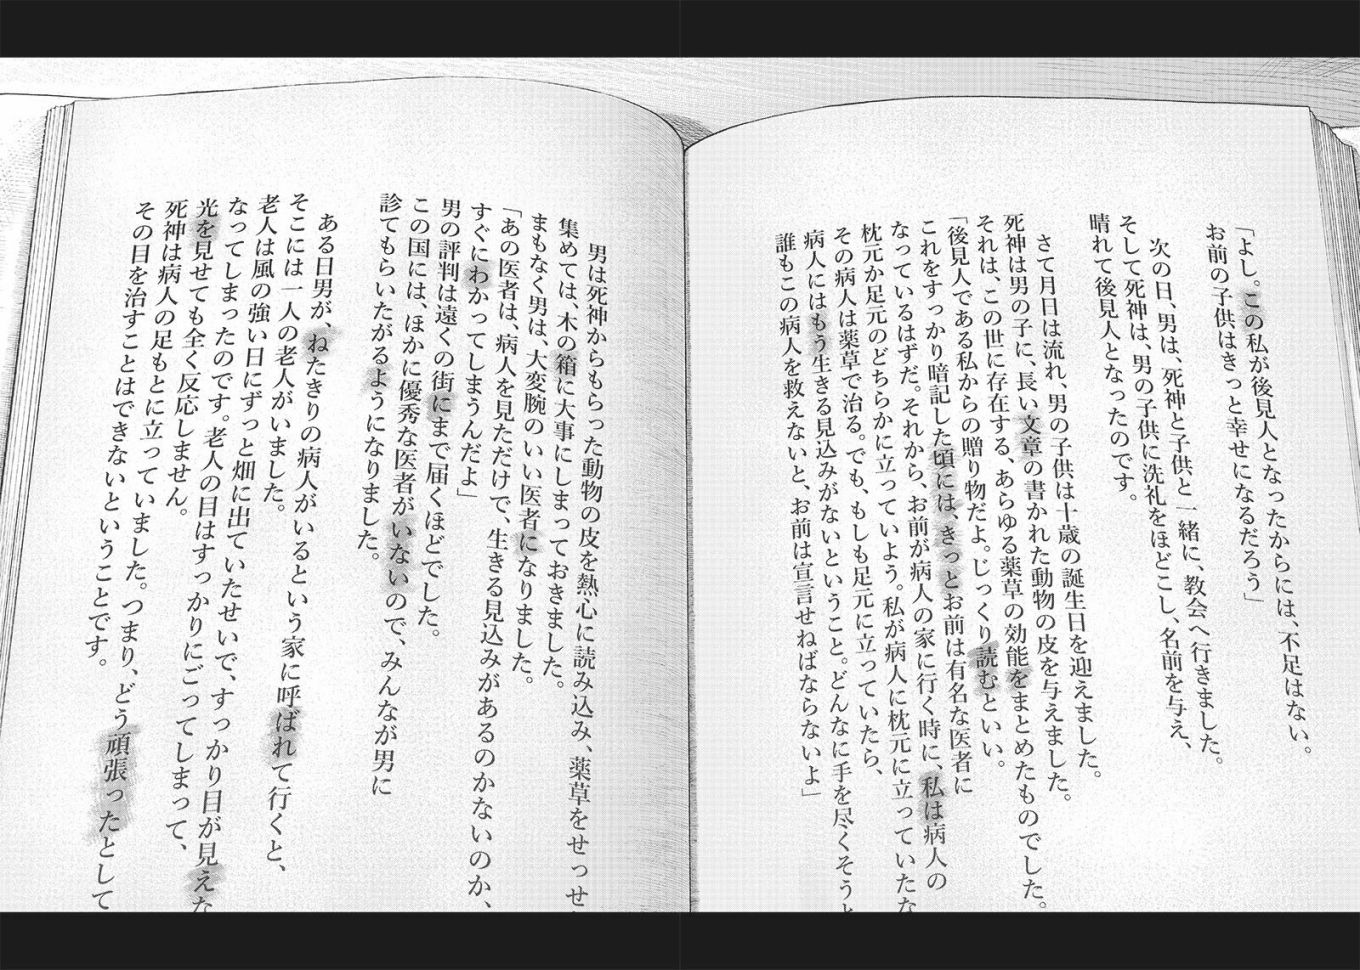 「よし。この私が後見人となったからには、不足はない。
お前の子供はきっと幸せになるだろう」
次の日、男は、死神と子供と一緒に、教会へ行きました。
そして死神は、男の子供に洗礼をほどこし、名前を与え、
晴れて後見人となったのです。
さて月日は流れ、男の子供は十歳の誕生日を迎えました。
死神は男の子に、長い文章の書かれた動物の皮を与えました。
それは、この世に存在する、あらゆる薬草の効能をまとめたものでした。
「後見人である私からの贈り物だよ。じっくり読むといい。
これをすっかり暗記した頃には、きっとお前は有名な医者に
なっているはずだ。それから、お前が病人の家に行く時に、私は病人の
枕元か足元のどちらかに立っていよう。私が病人に枕元に立っていたな
その病人は薬草で治る。でも、もしも足元に立っていたら、
病人にはもう生きる見込みがないということ。どんなに手を尽くそうと
誰もこの病人を救えないと、お前は宣言せねばならないよ」
男は死神からもらった動物の皮を熱心に読み込み、薬草をせっせ
集めては、木の箱に大事にしまっておきました。
まもなく男は、大変腕のいい医者になりました。
「あの医者は、病人を見ただけで、生きる見込みがあるのかないのか、
すぐにわかってしまうんだよ」
男の評判は遠くの街にまで届くほどでした。
この国には、ほかに優秀な医者がいないので、みんなが男に
診てもらいたがるようになりました。
ある日男が、ねたきりの病人がいるという家に呼ばれて行くと、
そこには一人の老人がいました。
老人は風の強い日にずっと畑に出ていたせいで、すっかり目が見えな
なってしまったのです。老人の目はすっかりにごってしまって、
光を見せても全く反応しません。
死神は病人の足もとに立っていました。つまり、どう頑張ったとして
その目を治すことはできないということです。